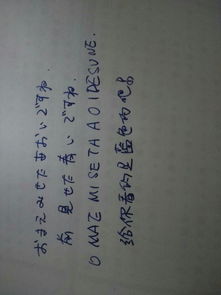 おまえみせたあおいですね.
前見せた青いですね.
OMAE MISETA AOIDESUNE.
给你看的是蓝色的吧